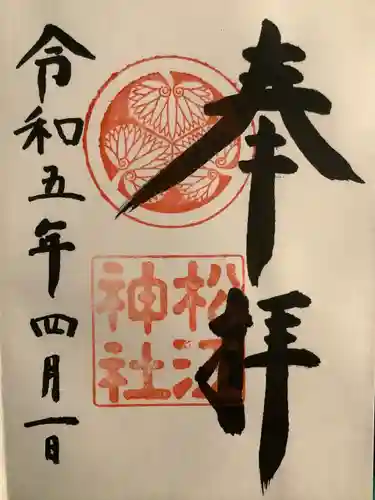 奉拝
松江神社
令和五年四月一日